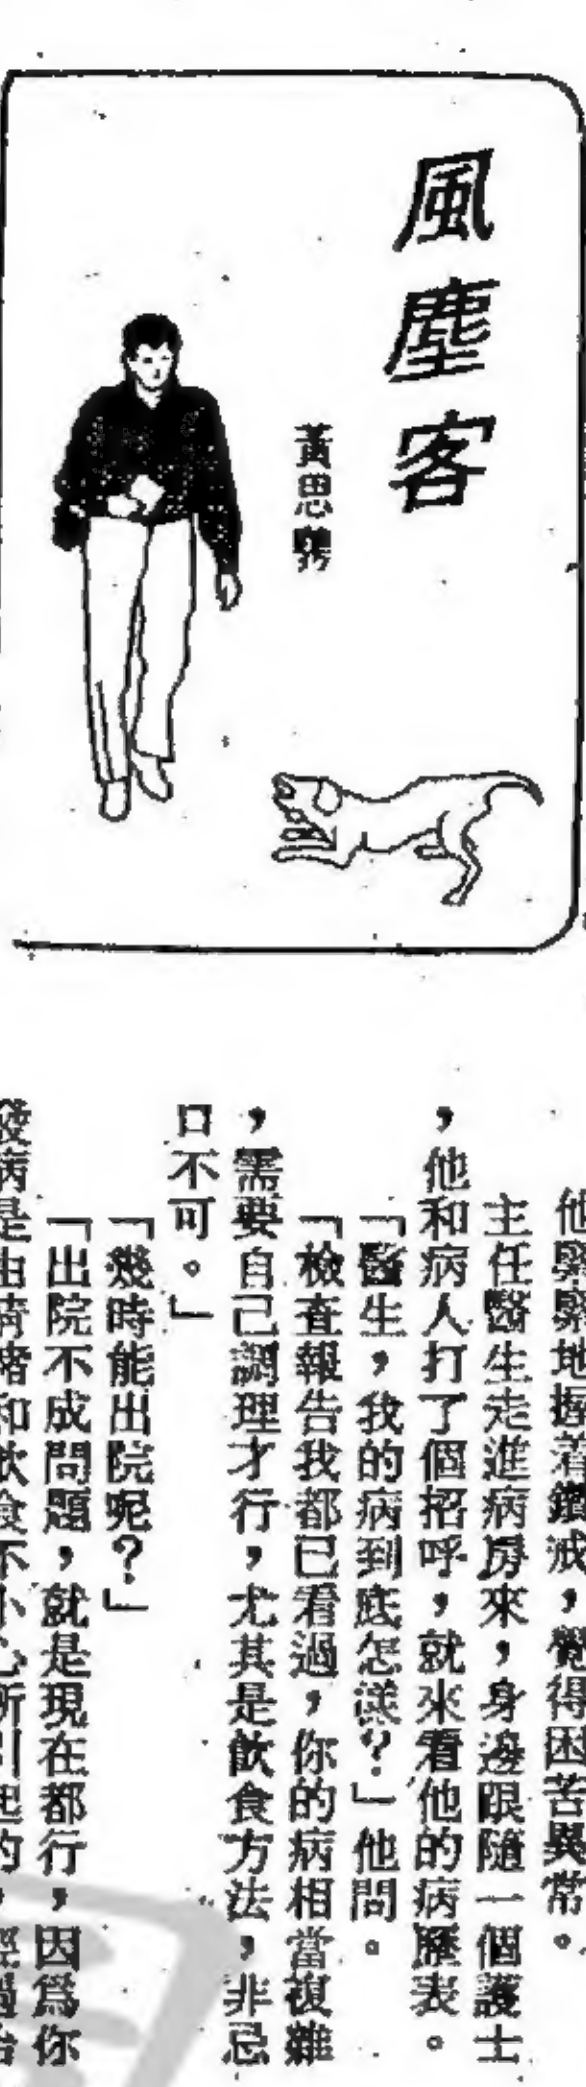 風塵客
黃思騁
他緊緊地握着鑽戒，覺得困苦異常。
主任醫生走進病房來，身邊跟隨一個護士
，他和病人打了個招呼，就來看他的病歷表。
「醫生，我的病到底怎樣？」他問。
「檢查報告我都已看過，你的病相當複雜
，需要自己調理才行，尤其是飲食方法，非忌
口不可。」
「幾時能出院呢？」
「出院不成問題，就是現在都行，因爲你
發病是由情緒和飲食不小心所引起的，經過治